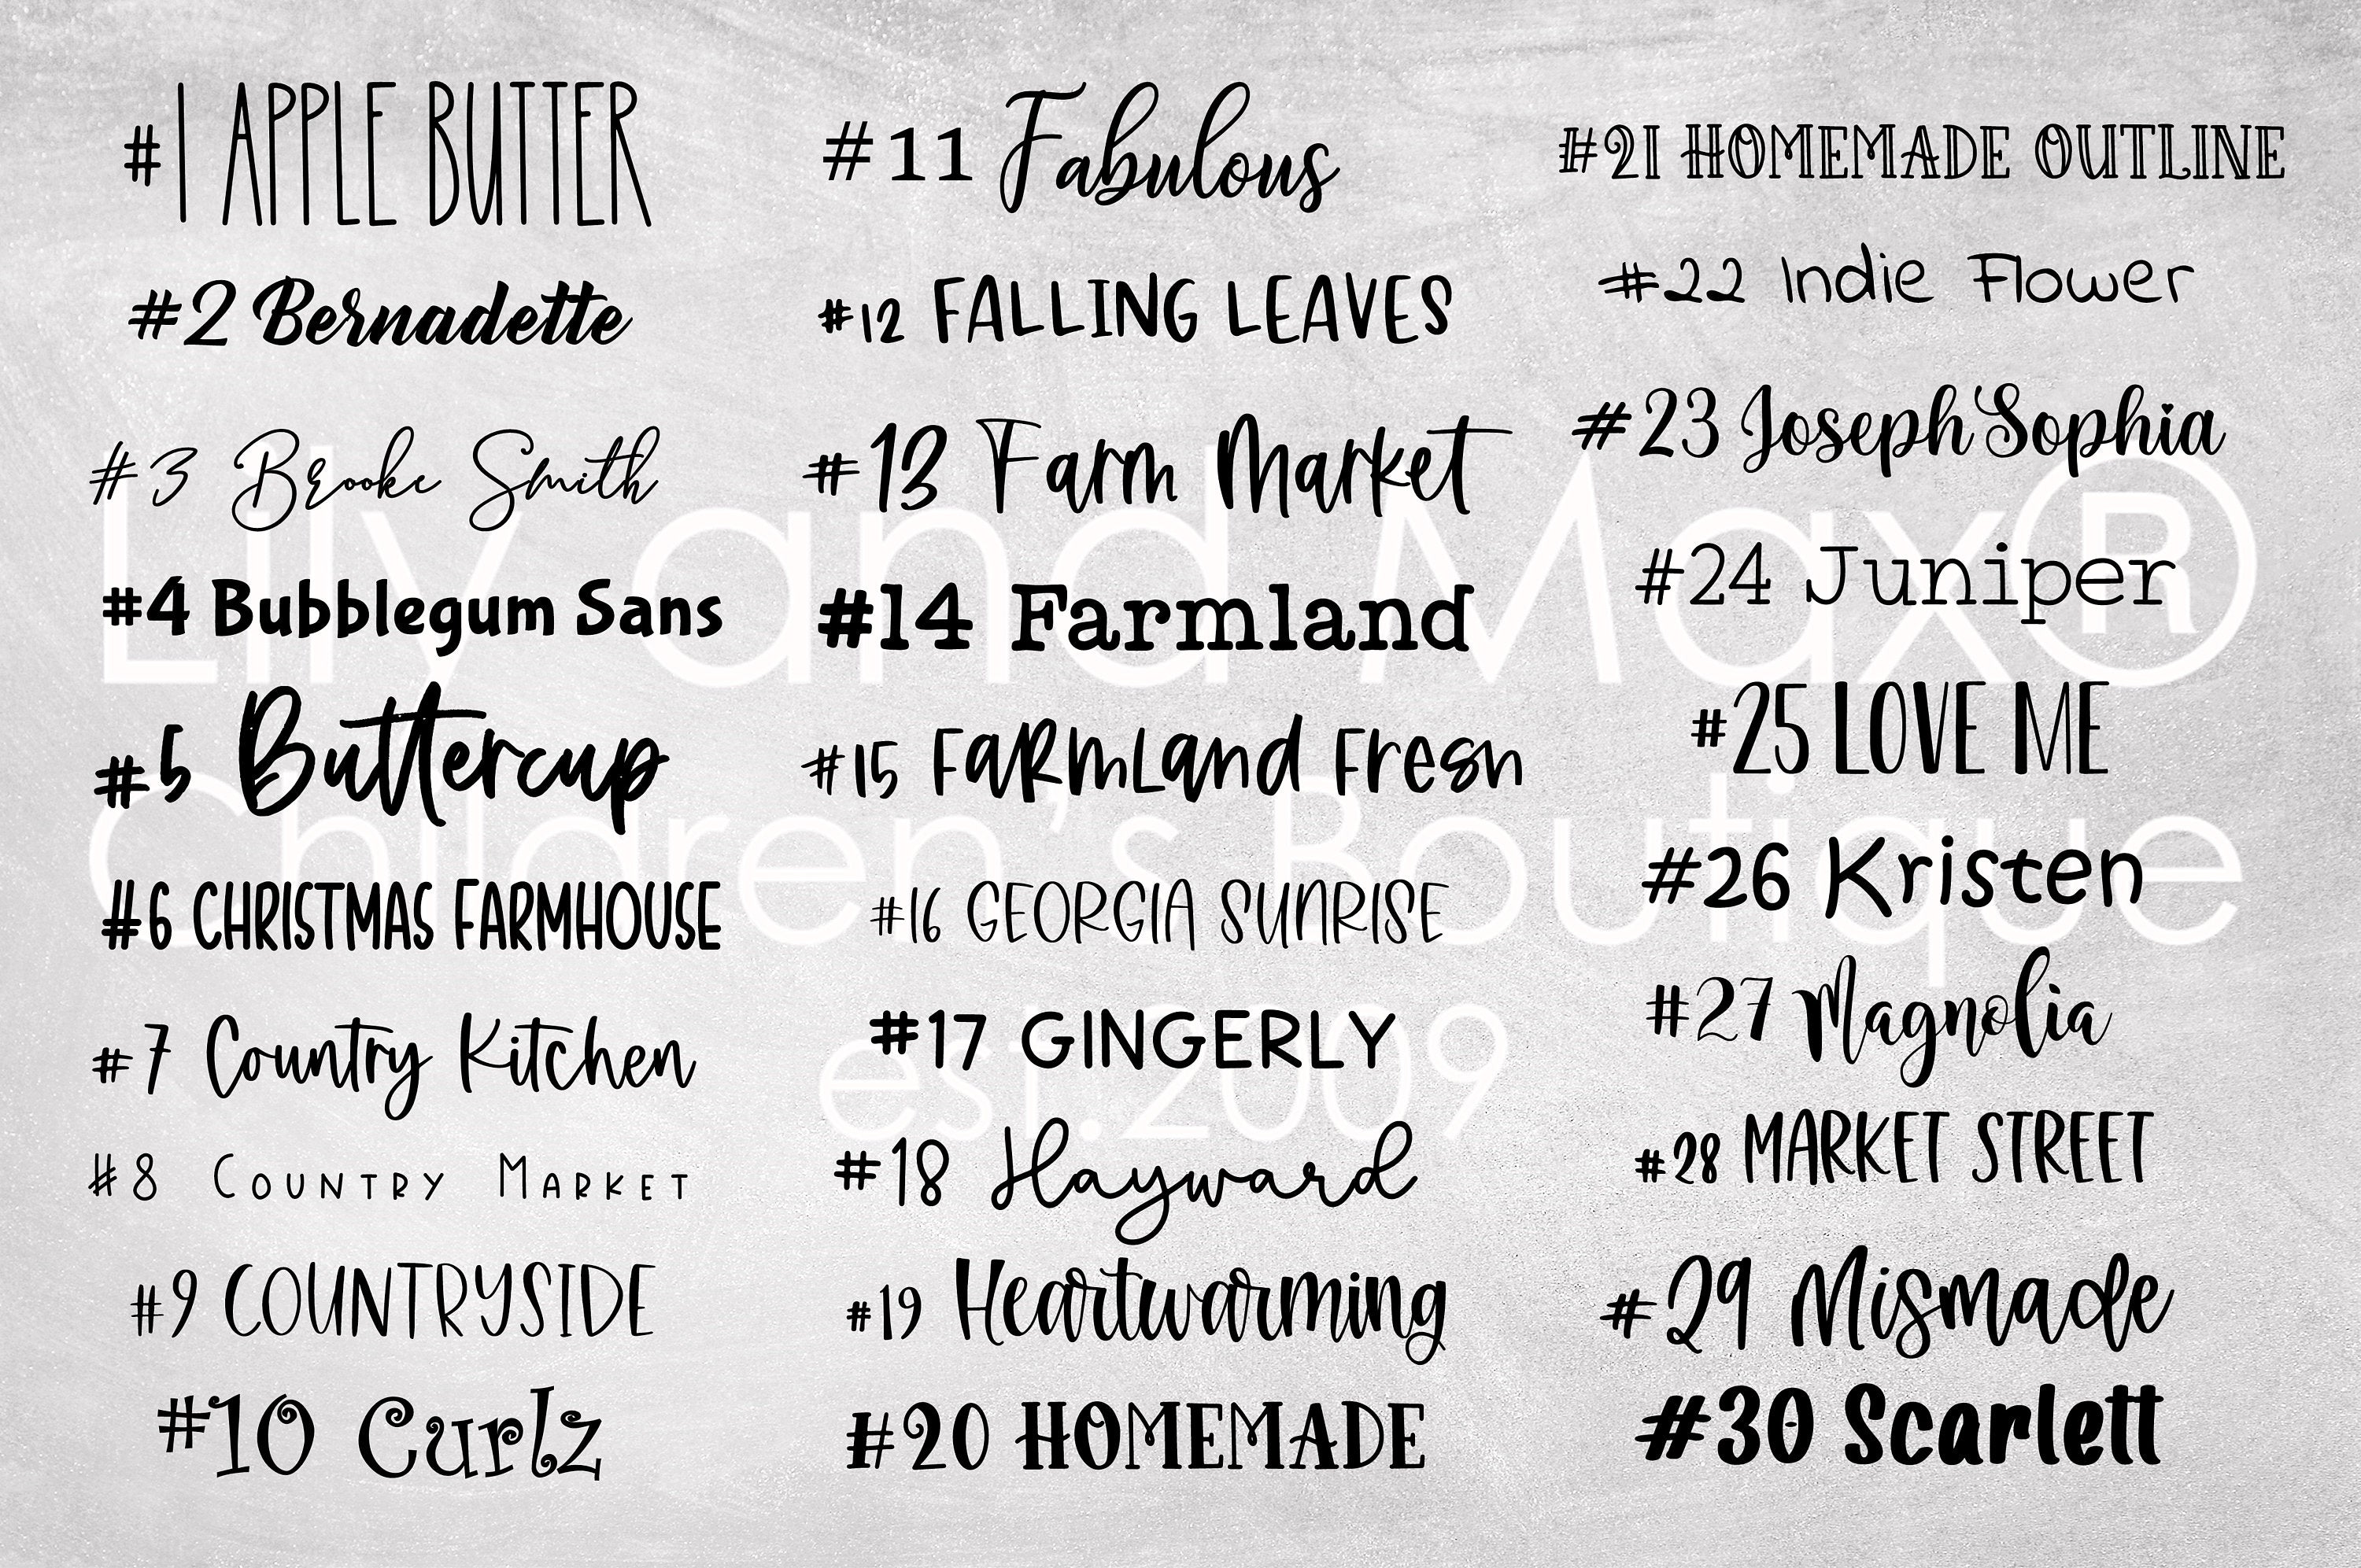 #1 APPLE BUTTER
#2 Bernadette
#3 Brooke Smith
#4 Bubblegum Sans
#5 Buttercup
#6 CHRISTMAS FARMHOUSE
#7 Country Kitchen
#8 Country Market
#9 COUNTRYSIDE
#10 Curlz
#11 Fabulous
#12 FALLING LEAVES
#13 Farm Market
#14 Farmland
#15 Farmland Fresh
#16 GEORGIA SUNRISE
#17 GINGERLY
#18 Hayward
#19 Heartwarming
#20 HOMEMADE
#21 HOMEMADE OUTLINE
#22 Indie Flower
#23 Joseph Sophia
#24 Juniper
#25 LOVE ME
#26 Kristen
#27 Magnolia
#28 MARKET STREET
#29 Mismade
#30 Scarlett
Lily and Max®
Children's Boutique
est.2009